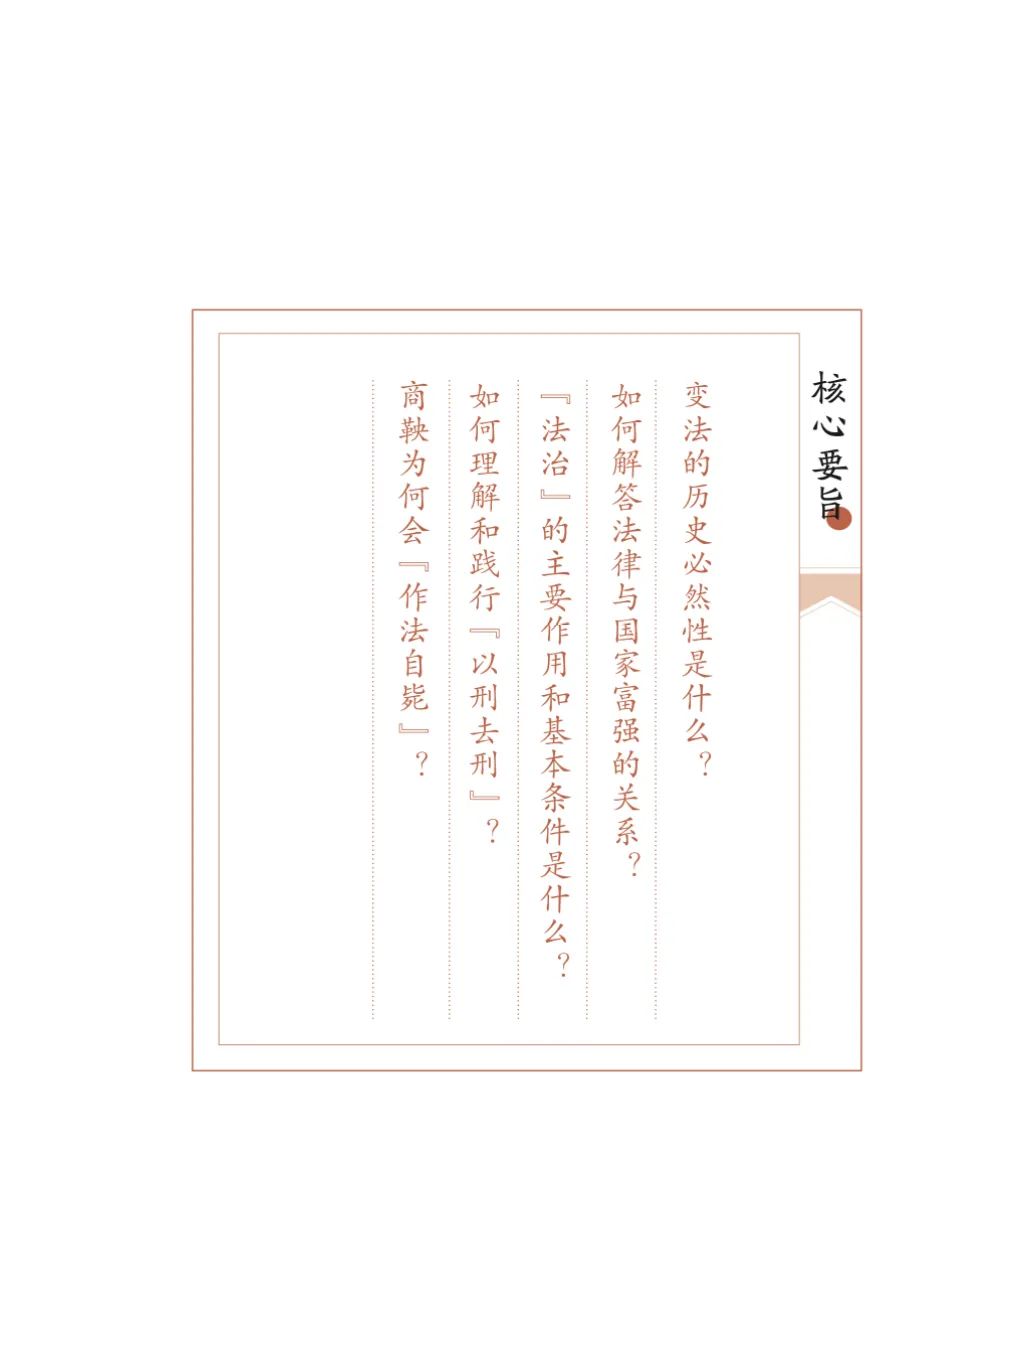 核心要旨
变法的历史必然性是什么？
如何解答法律与国家富强的关系？
『法治』的主要作用和基本条件是什么？
如何理解和践行『以刑去刑』？
商鞅为何会『作法自毙』？